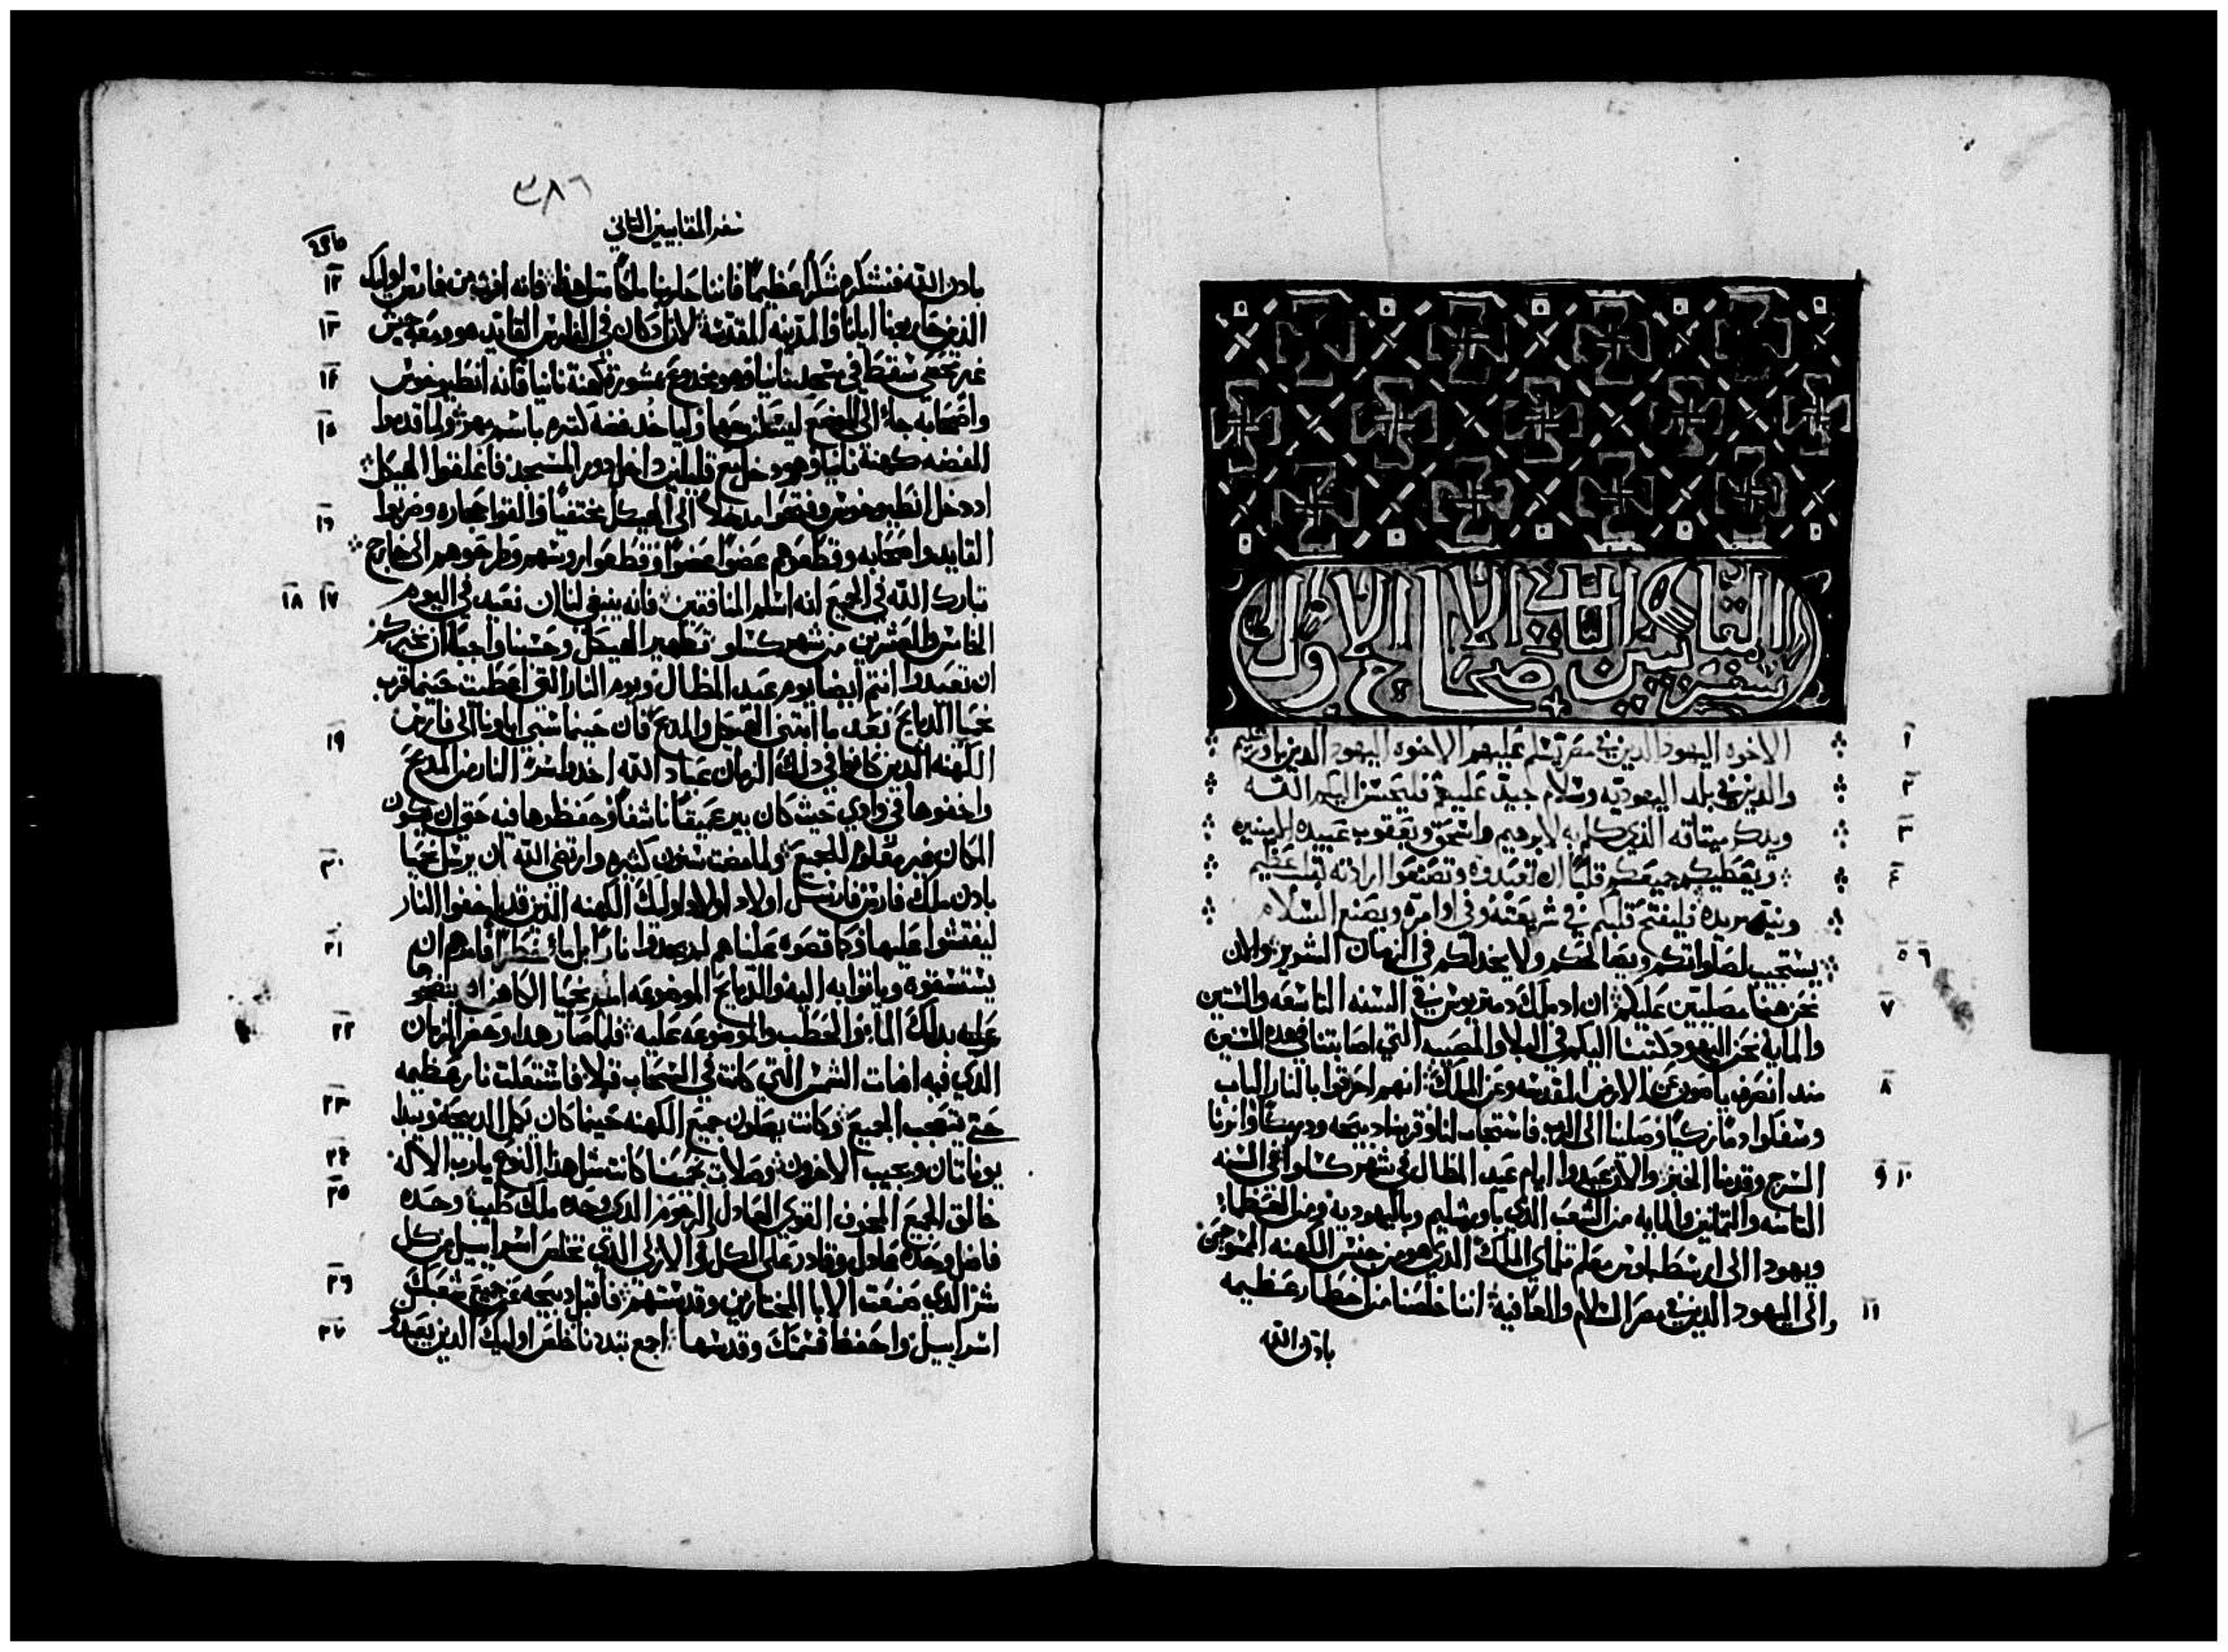 سفر المقابيين الثاني الاصحاح الاول
١ الاخوه اليهود الدين في مصر تسلم عليهم الاخوه اليهود الدين باورشليم
٢ والدين في بلد اليهوديه وسلام جيد عليكم فليحسن اليكم الله
٣ ويدكر ميتاقه الذي كلم به لابرهيم واسحق ويعقوب عبيده المومنين
٤ ويعطيكم جميعكم قلبًا ان تعبدوه وتصنعوا ارادته بقلب عظيم
ونيه مريده فليفتح قلبكم في شريعته وفي اوامره ويصنع السلام
٥ ٦ يستجيب لصلواتكم ويصالحكم ولا يخدلكم في الزمان الشرير والان
٧ نحن هنا مصليين عليكم ان اد ملك دمتريوس في السنه التاسعه والستين
والمايه نحن اليهود كتبنا اليكم في البلا والمصيبه التي اصابتنا في هده السنين
٨ مند انصرف ياسون عن الارض المقدسه وعن الملك انهم احرقوا بالنار الباب
وسفكوا دمًا زكيًا وصلينا الى الرب فاستجاب لنا وقربنا دبيحه ودرمكًا وانرنا
٩ ١٠ السرج وقدمنا الخبز والان عيدوا ايام عيد المظال في شهر كسلوا في السنه
التامنه والتمانين والمايه من الشعب الذي باورشليم وباليهوديه ومن العظماء
ويهودا الى ارسطبلوس معلم تلماي الملك الدي هو من جنس الكهنه الممسوحين
١١ والى اليهود الدين في مصر السلام والعافيه اننا خلصنا من اخطار عظيمه
بادن الله
٣٨٦
سفر المقابيين الثاني
١٢ بادن الله فنشكره شكرًا عظيمًا فاننا حاربنا ملكًا متل هدا فانه افرز من فارس اوليك
١٣ الدين حاربونا ايانا والمدينه المقدسه لانه اد كان في الفارس القايد هو ومعه جيش
١٤ غير محصي سقط في مسجد نانيا وهو مخدوع بمشورة كهنة نانيا فانه انطيوخوس
١٥ واصحابه جاء الى الموضع ليتزوجها ولياخد فضه كتيره باسم مهر ولما قدموا
الفضه كهنة نانيا وهو دخل مع قليلين داخل دور المسجد فاغلقوا الهيكل
١٦ اد دخل انطيوخوس وفتحوا مدخلاً الى الهيكل مختفيًا والقوا حجاره وضربوا
القايد واصحابه وقطعوهم عضوًا عضوًا وقطعوا روسهم وطرحوهم الى خارج
١٧ ١٨ تبارك الله في الجميع انه اسلم المنافقين فانه ينبغي لنا ان نعيد في اليوم
الخامس والعشرين من شهر كسلو تطهير الهيكل وحسبنا واجبًا ان نخبركم
ان تعيدوا انتم ايضًا يوم عيد المظال ويوم النار التي اعطيت حينما قرب
١٩ نحميا الدبايح بعد ما ابتنى الهيكل والمدبح فان حينما سبي اباونا الى فارس
الكهنه الدين كانوا في دلك الزمان عباد الله اخدوا سرًا النار من المدبح
واخفوها في وادي حيث كان بير عميقًا ناشفًا وحفظوها فيه حتى ان يكون
٢٠ المكان غير معلوم للجميع ولما مضت سنون كتيره وارتضى الله ان يرسل نحميا
بادن ملك فارس فارسل اولاد اولاد اوليك الكهنه الدين قد اخفوا النار
٢١ ليفتشوا عليها وكما قصوه علينا هم لم يجدوا نارًا بل ماءً خطرًا فامرهم ان
يستسقوه وياتوا به اليه والدبايح الموضوعه امر نحميا الكاهن ان ينضحوا
٢٢ عليه بدلك الماء والحطب والموضوعه عليه فلما صار هدا وحضر الزمان
الدي فيه اضات الشمس التي كانت في السحاب قبلاً فاشتعلت نار عظيمه
٢٣ حتى تعجب الجميع وكانت يصلون جميع الكهنه حينما كان تكمل الدبيحه ويبدا
٢٤ يوناتان ويجيب الاخرون وصلات نحميا كانت متل هدا النوع يارب الاله
٢٥ خالق الجميع المخوف القوي العادل الرحوم الدي وحده ملك طيب وحده
فاضل وحده عادل وقادر على الكل والازلي الدي تخلص اسراييل من كل
٢٦ شر الدي صنعت الابا المختارين وقدستهم فاقبل دبيحه عن جميع شعبك
٢٧ اسراييل واحفظ قسمتك وقدسها اجمع تبددنا خلص اوليك الدين يعبدو